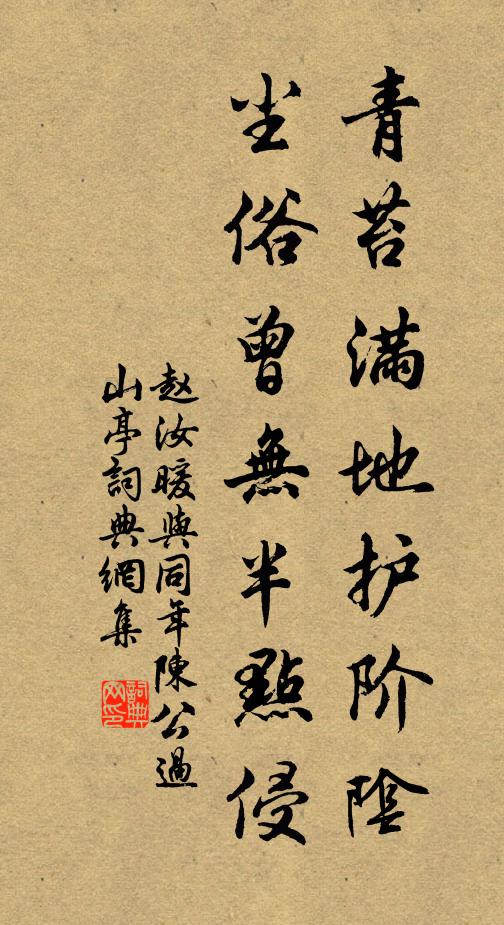 青苔满地护阶陰
尘俗曾無半點侵
赵汝暖與同年陳公過
山亭詞典網集
詞典
网印